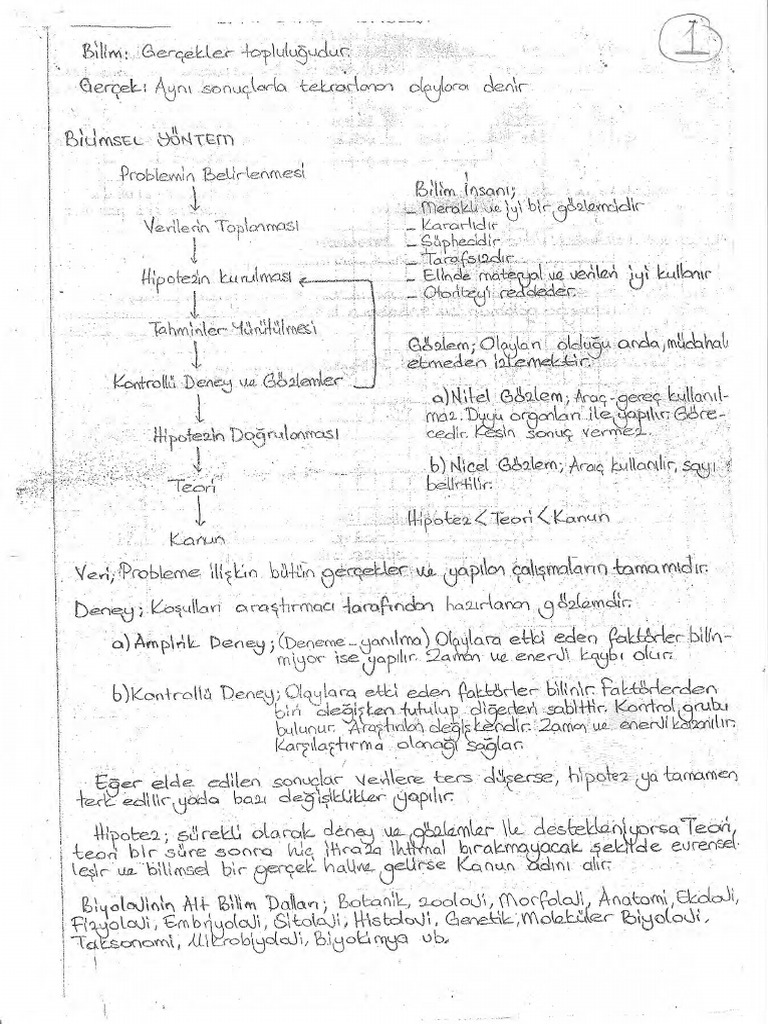 1
Bilim: Gerçekler topluluğudur.
Gerçek: Aynı sonuçlarla tekrarlanan olaylara denir
BİLİMSEL YÖNTEM
Problemin Belirlenmesi
Verilerin Toplanması
Hipotezin kurulması
Tahminler Yürütülmesi
Kontrollü Deney ve Gözlemler
Hipotezin Doğrulanması
Teori
Kanun
Bilim İnsanı;
- Meraklı ve iyi bir gözlemcidir
- Kararlıdır
- Şüphecidir
- Tarafsızdır
- Elinde materyal ve verileri iyi kullanır
- Otoriteyi reddeder.
Gözlem; Olayları olduğu anda, müdahale
etmeden izlemektir.
a) Nitel Gözlem; Araç-gereç kullanıl-
maz. Duyu organları ile yapılır. Göre-
cedir. Kesin sonuç vermez.
b) Nicel Gözlem; Araç kullanılır, sayı
belirtilir.
Hipotez < Teori < Kanun
Veri; Probleme ilişkin bütün gerçekler ve yapılan çalışmaların tamamıdır.
Deney; Koşulları araştırmacı tarafından hazırlanan gözlemdir.
a) Ampirik Deney; (Deneme-yanılma) Olaylara etki eden faktörler bilin-
miyor ise yapılır. Zaman ve enerji kaybı olur.
b) Kontrollü Deney; Olaylara etki eden faktörler bilinir. Faktörlerden
biri değişken tutulup diğerleri sabittir. Kontrol grubu
bulunur. Araştırılan değişkendir. Zaman ve enerji kazanılır.
Karşılaştırma olanağı sağlar.
Eğer elde edilen sonuçlar verilere ters düşerse, hipotez ya tamamen
terk edilir yada bazı değişiklikler yapılır.
Hipotez; sürekli olarak deney ve gözlemler ile destekleniyorsa Teori,
teori bir süre sonra hiç itiraza ihtimal bırakmayacak şekilde evrensel
leşir ve bilimsel bir gerçek haline gelirse Kanun adını alır.
Biyolojinin Alt Bilim Dalları; Botanik, Zooloji, Morfoloji, Anatomi, Ekoloji,
Fizyoloji, Embriyoloji, Sitoloji, Histoloji, Genetik, Moleküler Biyoloji,
Taksonomi, Mikrobiyoloji, Biyokimya vb.